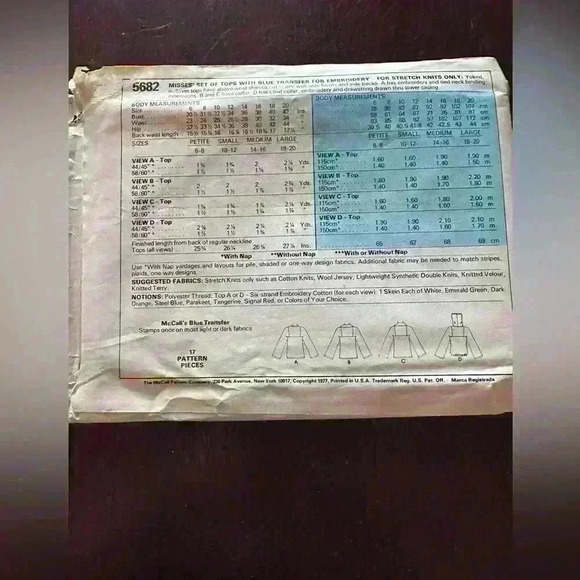 5682 MISSES' SET OF TOPS WITH BLUE TRANSFER FOR EMBROIDERY FOR STRETCH KNITS ONLY: Yoked,
pullover tops have above waist and side fronts and side backs. A has embroidery and tied neck binding
extensions. B and C have collar. D has hood, embroidery and drawstring drawn thru lower casing.
BODY MEASUREMENTS
Size 6 8 10 12 14 16 18 20
Bust 30½ 31½ 32½ 34 36 38 40 42 Ins.
Waist 23 24 25 26½ 28 30 32 34 "
Hip 32½ 33½ 34½ 36 38 40 42 44 "
Back waist length 15½ 15¾ 16 16¼ 16½ 16¾ 17 17¼ "
SIZES PETITE SMALL MEDIUM LARGE
6-8 10-12 14-16 18-20
VIEW A - Top
44/45"
58/60"
VIEW B - Top
44/45" 2 2
58/60"
VIEW C - Top
44/45"
58/60"
VIEW D - Top
44/45"
58/60"
Finished length from back of regular neckline
Tops (all views) 25¾ 26¼ 26¾ 27¼ Ins.
BODY MEASUREMENTS
6 8 10 12 14 16 18 20
78 80 83 87 92 97 102 107 cm
58 61 64 67 71 76 81 87 cm
83 85 88 92 97 102 107 112 cm
39.5 40 40.5 41.5 42 42.5 43 44 cm
PETITE SMALL MEDIUM LARGE
6-8 10-12 14-16 18-20
VIEW A - Top
115cm* 1.60 1.60 1.90 1.90 m
150cm* 1.40 1.40 1.60
VIEW B - Top
115cm* 1.80 1.90 1.90 2.20 m
150cm* 1.40 1.40 1.70 1.80 m
VIEW C - Top
115cm* 1.60 1.60 1.80 2.00 m
150cm* 1.40 1.40 1.60 1.60 m
VIEW D - Top
115cm* 1.90 1.90 2.10 2.10 m
150cm* 1.40 1.60 1.60 1.70 m
65 67 68 69 cm
*With Nap **Without Nap ***With or Without Nap
Use *With Nap yardages and layouts for pile, shaded or one-way design fabrics. Additional fabric may be needed to match stripes,
plaids, one-way designs.
SUGGESTED FABRICS: Stretch Knits only such as Cotton Knits, Wool Jersey, Lightweight Synthetic Double Knits, Knitted Velour,
Knitted Terry.
NOTIONS: Polyester Thread; Top A or D - Six-strand Embroidery Cotton (for each view): 1 Skein Each of White, Emerald Green, Dark
Orange, Steel Blue, Parakeet, Tangerine, Signal Red, or Colors of Your Choice.
McCall's Blue Transfer
Stamps once on most light or dark fabrics
17
PATTERN
PIECES
A B C D
The McCall Pattern Company, 230 Park Avenue, New York 10017, Copyright 1977, Printed in U.S.A. Trademark Reg. U.S. Pat. Off. - Marca Registrada